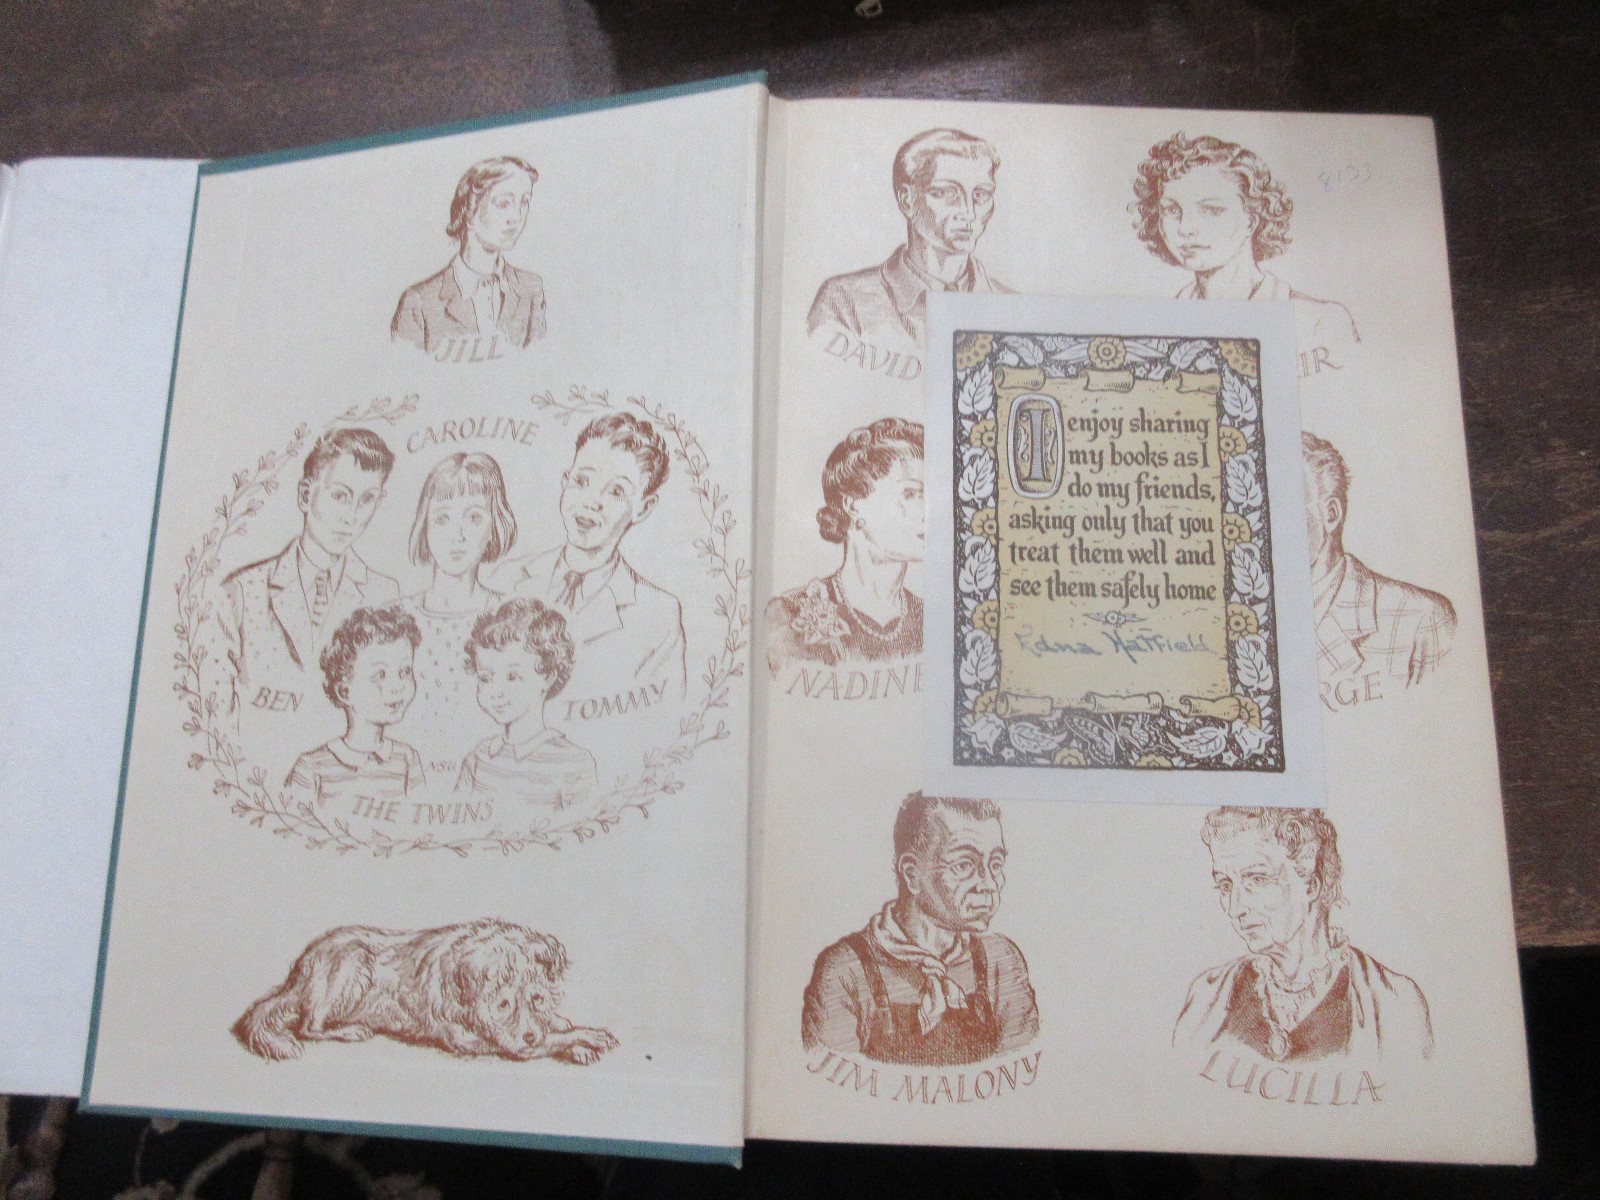 JILL
CAROLINE
BEN
TOMMY
NSU
THE TWINS
8133
DAVID
IR
NADINE
RGE
I enjoy sharing
my books as I
do my friends,
asking only that you
treat them well and
see them safely home
Edna Hatfield
JIM MALONY
LUCILLA